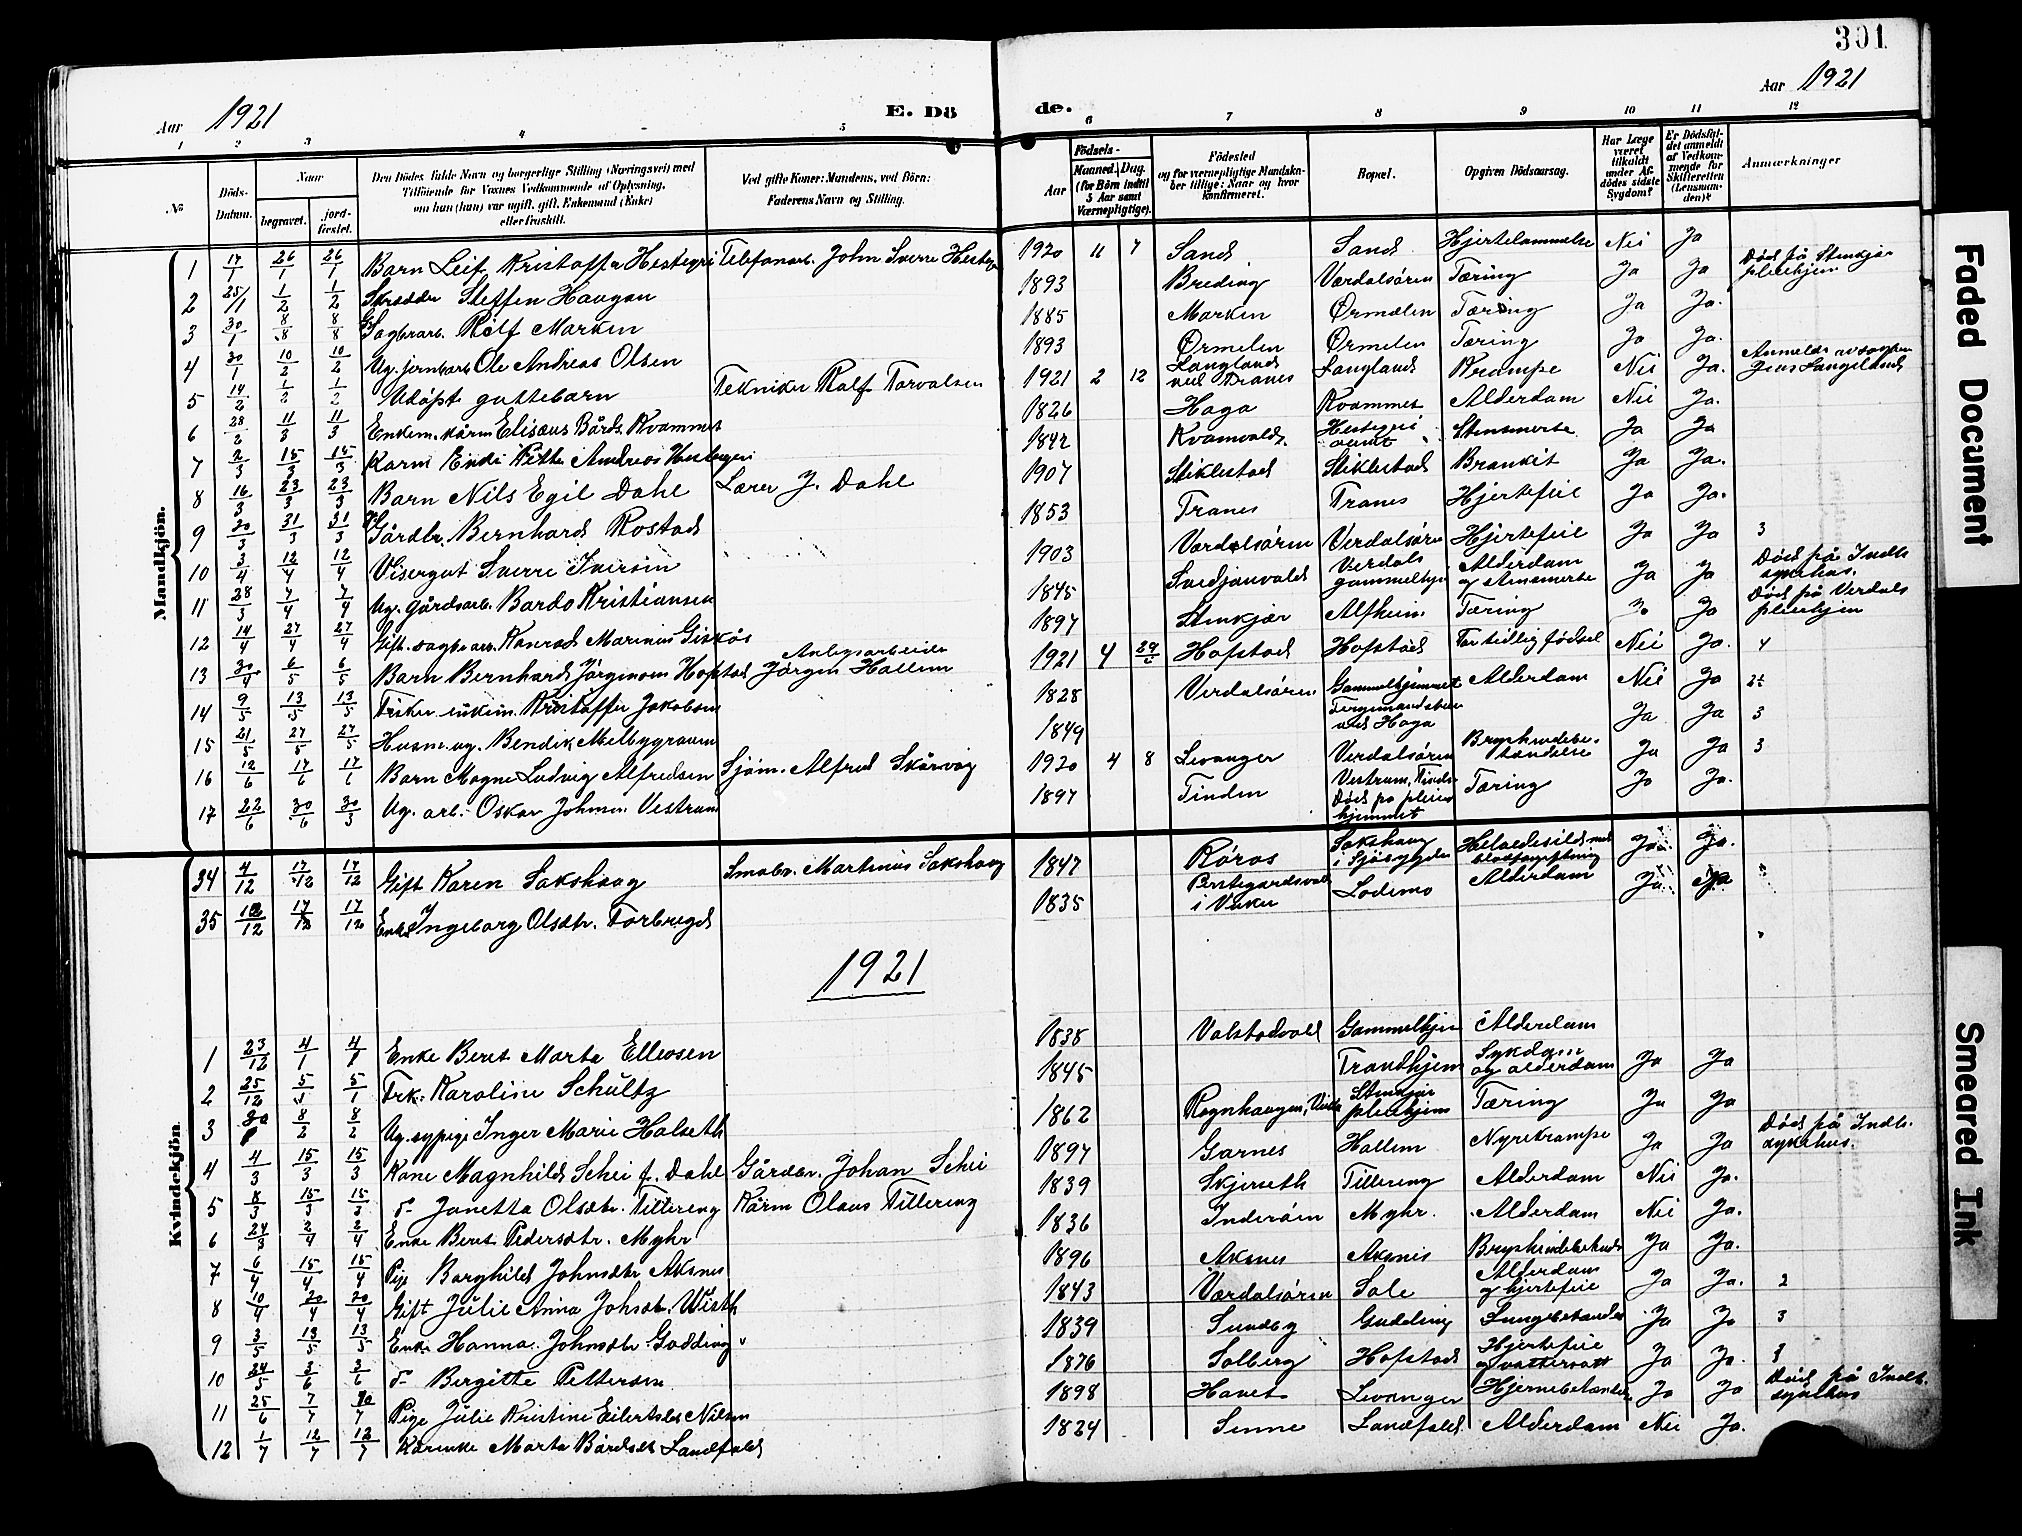 301
Aar 1921 E. Dö de. Aar 1921
1 2 3 4 5 6 7 8 9 10 11 12
No Döds-Datum. Naar begravet. jord-fæstet. Den Dödes fulde Navn og borgerlige Stilling (Næringsvei) med Tilföiende for Voxnes Vedkommende af Oplysning, om han (hun) var ugift, gift, Enkemand (Enke) eller fraskilt. Ved gifte Koner: Mandens, ved Börn: Faderens Navn og Stilling. Födsels- Aar Maaned. Dag. (for Börn indtil 5 Aar samt Værnepligtige). Födested og for værnepligtige Mandskaber tillige: Naar og hvor konfirmeret. Bopæl. Opgiven Dödsaarsag. Har Læge været tilkaldt under Afdödes sidste Sygdom? Er Dödsfaldet anmeldt af Vedkommende for Skifteretten (Lensmanden)? Anmærkninger
Mandkjön.
1 17/1 26/1 26/1 Barn Leif Kristoffer Hestegrei Telefonarb. John Sverre 1920 11 7 Sand Sand Hjertelammelse Nei Ja
2 25/1 1/2 1/2 Skrædder Steffen Haugan 1893 Breding Værdalsören Tæring Ja Ja Död på Stenkjær pleiehjem
3 30/1 8/8 8/8 Sagbrarb. Rolf Marken 1885 Marken Örmelen Tæring Ja Ja.
4 30/1 10/2 10/2 Ug. jernbarb Ole Andreas Olsen 1893 Örmelen Örmelen Tæring Ja Ja.
5 14/2 1/2 1/2 Udöpt guttebarn Tekniker Ralf Torvalsen 1921 2 12 Langlands ved Tranes Langlands Krampe Nei Ja. Anmeldt av
6 28/2 11/3 11/3 Enkem. kårm Eliseus Bårds. Kvammet 1826 Haga Kvammet Alderdom Nei Ja.
7 2/3 15/3 15/3 Karm Enke Petter Andreas 1842 Kvamvald Stensmerte Ja Ja
8 16/3 23/3 23/3 Barn Nils Egil Dahl Lærer J. Dahl 1907 Stiklestad Stiklestad Brankit Ja Ja.
9 20/3 31/3 31/3 Gårdbr. Bernhard Rostad 1853 Tranes Tranes Hjertefeil Ja Ja.
10 3/4 12/4 12/4 Visergut Sverre Iversen 1903 Værdalsören Verdalsören Hjertefeil Ja Ja 3
11 28/3 7/4 7/4 Ug. gårdsarb. Bardo Kristiansen 1845 Svedjanvald Verdals gammelhjem Alderdom og stensmerte Ja Ja Död på Indh. sykehus.
12 14/4 27/4 27/4 Gift. sagbrarb. Konrad Marinius Giskås 1897 Stenkjær Alfheim Tæring Ja Ja Död på Verdals pleiehjem
13 30/4 6/5 6/5 Barn Bernhard Jörginson Hofstad Anlegsarbeider Jörgen Hallem 1921 4 29/ Hofstad Hofstad For tidlig födsel Nei Ja. 4
14 9/5 13/5 13/5 Fisker enkem. Kristoffer Jakobsen 1828 Verdalsören Gammelhjemmet Alderdom Nei Ja
15 21/5 27/5 27/5 Husm. ug. Bendik Melbygraven 1849 ved Haga Ja Ja 3
16 12/6 17/6 17/6 Barn Magne Ludvig Alfredsen Sjöm. Alfred Skårvåg 1920 4 8 Levanger Verdalsören Brysthindebetændelse Ja Ja 3
17 22/6 30/6 30/3 Ug. arb. Oskar Johnsen Vestrum 1897 Tinden Vestrum, Tinden Död på pleiehjemmet Tæring Ja Ja.
34 4/12 17/12 17/12 Gift Karen Sakshaug Småbr. Martinus Sakshaug 1847 Röros Sakshaug i Sjöbygden Ja Ja.
35 12/12 17/12 17/12 Enke Ingeborg Olsdtr. Forbregd 1835 i Vuku Lodemo Alderdom Ja Ja
1921
Kvindekjön.
1 23/12 4/1 4/1 Enke Beret Marta Ellevsen 1838 Valstadvald Gammelhjem Alderdom
2 25/12 5/1 5/1 Frk. Karoline Schültz 1845 Trondhjem Sykdom og alderdom Ja Ja
3 30/1 8/2 8/2 Ug. sypige Inger Marie Halseth 1862 Rognhaugen, Stenkjær pleiehjem Tæring Ja Ja
4 4/3 15/3 15/3 Kone Magnhild Schei f. Dahl Gårdbr. Johan Schei 1897 Garnes Hallem Nyrekrampe Ja Ja Död på Indh. sykehus.
5 8/3 15/3 15/3 d- Janetta Olsdtr. Tillereng Kårm Olaus Tillereng 1839 Skjerseth Tillereng Alderdom Nei Ja.
6 24/3 2/4 2/4 Enke Beret Pedersdtr. Myhr 1836 Inderöen Myhr. Alderdom Nei Ja.
7 6/4 15/4 15/4 Pige Borghild Johnsdtr Aksnes 1896 Aksnes Aksnes Brysthindebetænd Ja Ja.
8 10/4 20/4 20/4 Gift Julie Anna Johsdtr. Wisth 1843 Værdalsören Sole Alderdom og hjertefeil Ja Ja. 2
9 3/5 13/5 13/5 Enke Hanna Johnsdtr Godding 1839 Sundby Gudding Lungebetændels Ja Ja 3
10 24/5 3/6 3/6 d- Bergitte Pettersen 1876 Solberg Hofstad Hjertefeil og vattersott Ja Ja. 3
11 25/6 7/7 7/7 Pige Julie Kristine Eilertsdtr Nilsen 1898 Havet Levanger Hjernebetændel Ja Ja Död på Indh. sykehus
12 1/7 12/7 12/7 Kårenke Marta Bårdsdtr Landfald 1824 Sinne Landfald. Alderdom Nei Ja.
Faded Document
Smeared Ink